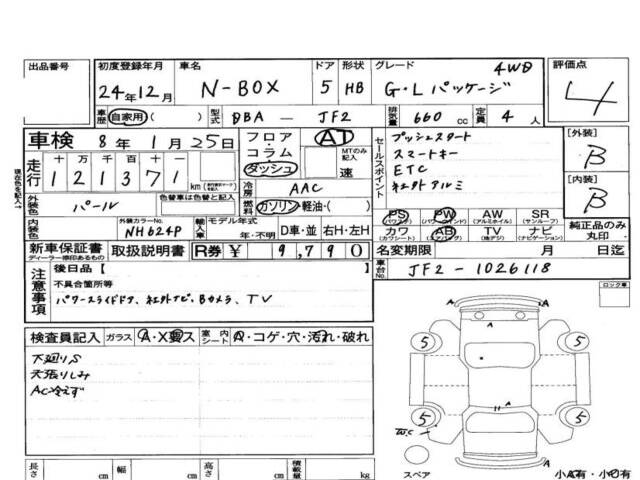 出品番号
初度登録年月
24年12月
車名
N-BOX
ドア
5
形状
HB
グレード
4WD
G・Lパッケージ
評価点
4
車歴
自家用 ( )
型式
DBA － JF2
排気量
660 cc
定員
4 人
車検 8年 1月 25日
フロア・
コラム・
ダッシュ
AT
MTのみ記入
速
セールスポイント
プッシュスタート
スマートキー
ETC
社外アルミ
[外装]
B
[内装]
B
現在色を記入→
走行
十 万 千 百 十 一
1 2 1 3 7 1
km
冷房
AAC
外装色
パール
色替車は色替と記入
燃料
ガソリン・軽油・( )
PS
(パワステ)
PW
(パワーウインド)
AW
(アルミホイル)
SR
(サンルーフ)
カワ
(カワシート)
AB
(エアバック)
TV
(地デジ)
ナビ
(ナビゲーション)
純正品のみ
丸印
内装色
外装カラーNo.
NH624P
輸入車
モデル年式
年・不明
D車・並 右H・左H
新車保証書
ディーラー捺印あるもの
取扱説明書
R券 ¥ 9,790
名変期限 月 日迄
車台No.
JF2-1026118
注意事項
後日品【
不具合箇所等
パワースライドドア、社外ナビ、Bカメラ、TV
ロック車
検査員記入
ガラス
A・X要ス
室内シート
A・コゲ・穴・汚れ・破れ
下廻りS
天張りしみ
AC冷えず
A
A
5
5
5
5
A
W.C
スペア
小A有・小凹有
長さ cm
幅 cm
高さ cm
積載量 kg